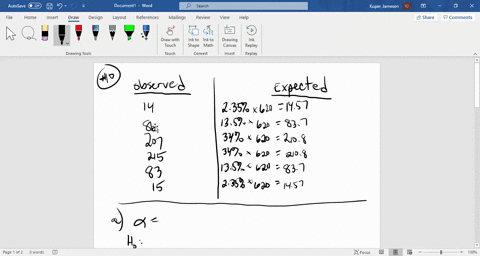 AutoSave Off Document1 - Word Search Kuper, Jameson
File Home Insert Draw Design Layout References Mailings Review View Help Share Comments
Draw with Touch Ink to Shape Ink to Math Drawing Canvas Ink Replay
Drawing Tools Touch Convert Insert Replay
#10
Observed Expected
14 2.35% × 620 = 14.57
13.5% × 620 = 83.7
207 34% × 620 = 210.8
215 34% × 620 = 210.8
83 13.5% × 620 = 83.7
15 2.35% × 620 = 14.57
a) α =
H₀:
Page 1 of 2 0 words Focus